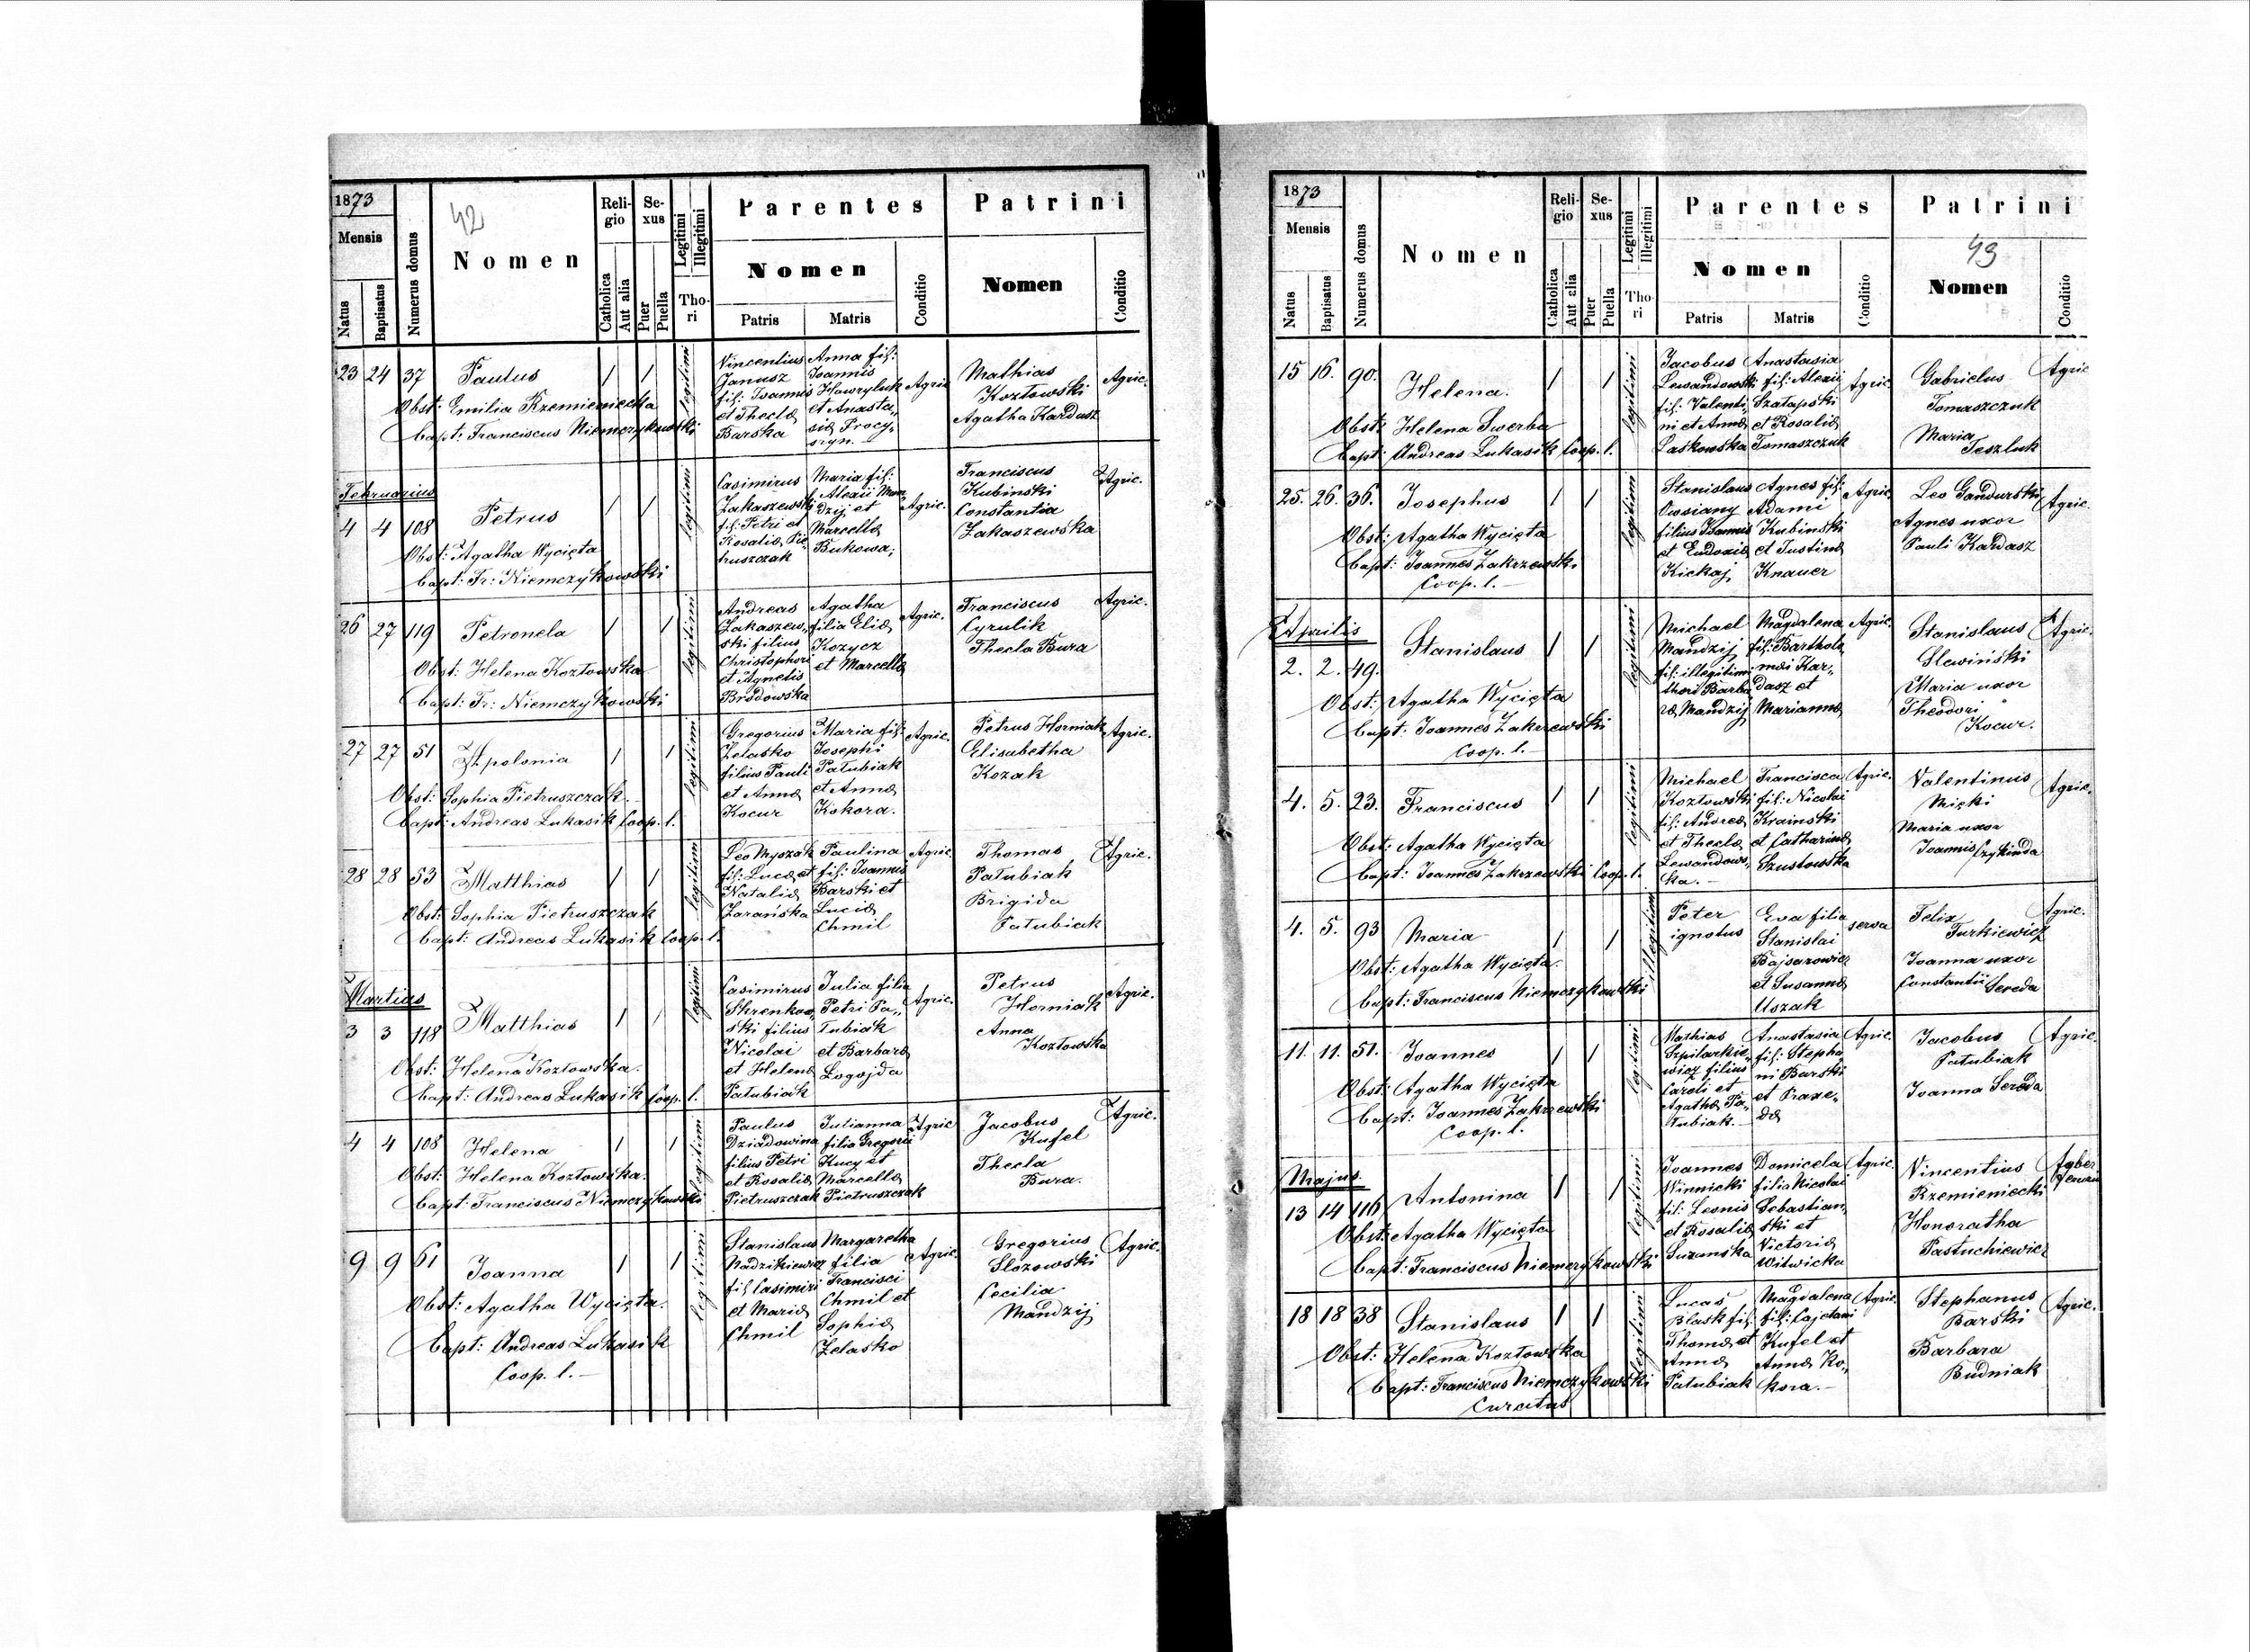 1873
42
Mensis
Natus
Baptisatus
Numerus domus
Nomen
Religio
Catholica
Aut alia
Sexus
Puer
Puella
Legitimi
Illegitimi
Thori
Parentes
Nomen
Patris
Matris
Conditio
Patrini
Nomen
Conditio
23 24 37 Paulus / / legitimi
Obst: Emilia Rzemieniecka
Bapt: Franciscus Niemczykowski
Vincentius
Janusz
fil: Joannis
et Theclæ
Barska
Anna fil:
Joannis
Hawryluk
et Anasta„
siæ Procy„
szyn.
Agric.
Mathias
Kozłowski
Agatha Kardasz
Agric.
Februarius
4 4 108 Petrus / / legitimi
Obst: Agatha Wycięta
Bapt: Fr: Niemczykowski
Casimirus
Zakaszewski
fil: Petri et
Rosaliæ Pie„
truszczak
Maria fil:
Alexii Man„
dzij et
Marcellæ
Bukowa,
Agric.
Franciscus
Kubinski
Constantia
Zakaszewska
Agric.
26 27 119 Petronela / / legitimi
Obst: Helena Kozłowska
Bapt: Fr: Niemczykowski
Andreas
Zakaszew„
ski filius
Christophori
et Agnetis
Brodowska
Agatha
filia Eliæ
Kozycz
et Marcellæ
Agric.
Franciscus
Cyrulik
Thecla Bura
Agric.
27 27 51 Apolonia / / legitimi
Obst: Sophia Pietruszczak.
Bapt: Andreas Lukasik Coop. l.
Gregorius
Zelasko
filius Pauli
et Annæ
Kocur
Maria fil:
Josephi
Pałubiak
et Annæ
Kokora.
Agric.
Petrus Horniak
Elisabetha
Kozak
Agric.
28 28 53 Matthias / / legitimi
Obst: Sophia Pietruszczak
Bapt: Andreas Lukasik Coop. l.
Leo Myszak
fil: Lucæ et
Nataliæ
Zarańska
Paulina
fil: Joannis
Barski et
Luciæ
Chmil
Agric.
Thomas
Pałubiak
Brigida
Pałubiak
Agric.
Martius
3 3 118 Matthias / / legitimi
Obst: Helena Kozłowska.
Bapt: Andreas Lukasik Coop. l.
Casimirus
Skrenkow„
ski filius
Nicolai
et Helenæ
Pałubiak
Julia filia
Petri Pa„
łubiak
et Barbaræ
Łogojda
Agric.
Petrus
Horniak
Anna
Kozłowska
Agric.
4 4 108 Helena / / legitimi
Obst: Helena Kozłowska.
Bapt: Franciscus Niemczykowski
Paulus
Dziadowina
filius Petri
et Rosaliæ
Pietruszczak
Julianna
filia Gregorii
Kucy et
Marcellæ
Pietruszczak
Agric
Jacobus
Kufel
Thecla
Bura.
Agric.
9 9 61 Joanna / / legitimi
Obst: Agatha Wycięta.
Bapt: Andreas Lukasik
Coop. l.
Stanislaus
Nadzikiewicz
fil Casimiri
et Mariæ
Chmil
Margaretha
filia
Francisci
Chmil et
Sophiæ
Zelasko
Agric.
Gregorius
Slozowski
Cecilia
Mandzij
Agric.
1873
Mensis
Natus
Baptisatus
Numerus domus
Nomen
Religio
Catholica
Aut alia
Sexus
Puer
Puella
Legitimi
Illegitimi
Thori
Parentes
Nomen
Patris
Matris
Conditio
Patrini
43
Nomen
Conditio
15 16. 90. Helena. / / legitimi
Obst: Helena Swerba
Bapt: Andreas Lukasik Coop. l.
Jacobus
Lewandowski
fil: Valenti„
ni et Annæ
Laskowska
Anastasia
fil: Alexii
Szałapski
et Rosaliæ
Tomaszczuk
Agric.
Gabrielus
Tomaszczuk
Maria
Teszluk
Agric
25. 26. 36. Josephus / / legitimi
Obst: Agatha Wycięta
Bapt: Joannes Zakrzewski
Coop. l.
Stanislaus
Owsiany
filius Joannis
et Eudoxiæ
Kickaj
Agnes fil:
Adami
Kubinski
et Justinæ
Knauer
Agric.
Leo Gandurski
Agnes uxor
Pauli Kardasz
Agric.
Aprilis
2. 2. 49. Stanislaus / / legitimi
Obst: Agatha Wycięta
Bapt: Joannes Zakrzewski
Coop. l.
Michael
Mandzij
fil: illegitimi
thori Barba„
ræ Mandzij
Magdalena
fil: Bartholo„
mæi Kar„
dasz et
Mariannæ
Agric.
Stanislaus
Slewiński
Maria uxor
Theodori
Kocur.
Agric.
4. 5. 23. Franciscus / / legitimi
Obst: Agatha Wycięta
Bapt: Joannes Zakrzewski Coop. l.
Michael
Kozłowski
fil: Andreæ
et Theclæ
Lewandows„
ka.
Francisca
fil: Nicolai
Krainski
et Catharinæ
Szustowska
Agric.
Valentinus
Micki
Maria uxor
Joannis Czykinda
Agric.
4. 5. 93 Maria / / illegitimi
Obst: Agatha Wycięta.
Bapt: Franciscus Niemczykowski
Peter
ignotus
Eva filia
Stanislai
Bajsarowicz
et Susannæ
Uszak
serva
Felix
Turkiewicz
Joanna uxor
Constantii Sereda
Agric.
11. 11. 51. Joannes / / legitimi
Obst: Agatha Wycięta
Bapt: Joannes Zakrzewski
Coop. l.
Mathias
Szpilarkie„
wicz filius
Caroli et
Agathæ Pa„
łubiak.
Anastasia
fil: Stepha„
ni Barski
et Praxe„
dæ
Agric.
Jacobus
Pałubiak
Joanna Sereda
Agric.
Majus.
13 14 116 Antonina / / legitimi
Obst: Agatha Wycięta
Bapt: Franciscus Niemczykowski
Joannes
Winnicki
fil: Leonis
et Rosaliæ
Suzanska
Domicela
filia Nicolai
Sebastian„
ski et
Victoriæ
Witwicka
Agric.
Vincentius
Rzemieniecki
Honoratha
Pastuchiewicz
18 18 38 Stanislaus / / legitimi
Obst: Helena Kozłowska
Bapt: Franciscus Niemczykowski
Curatus
Lucas
Blask fil:
Thomæ et
Annæ
Pałubiak
Magdalena
fil: Cajetani
Kufel et
Annæ Ko„
kora.
Agric.
Stephanus
Barski
Barbara
Budniak
Agric.